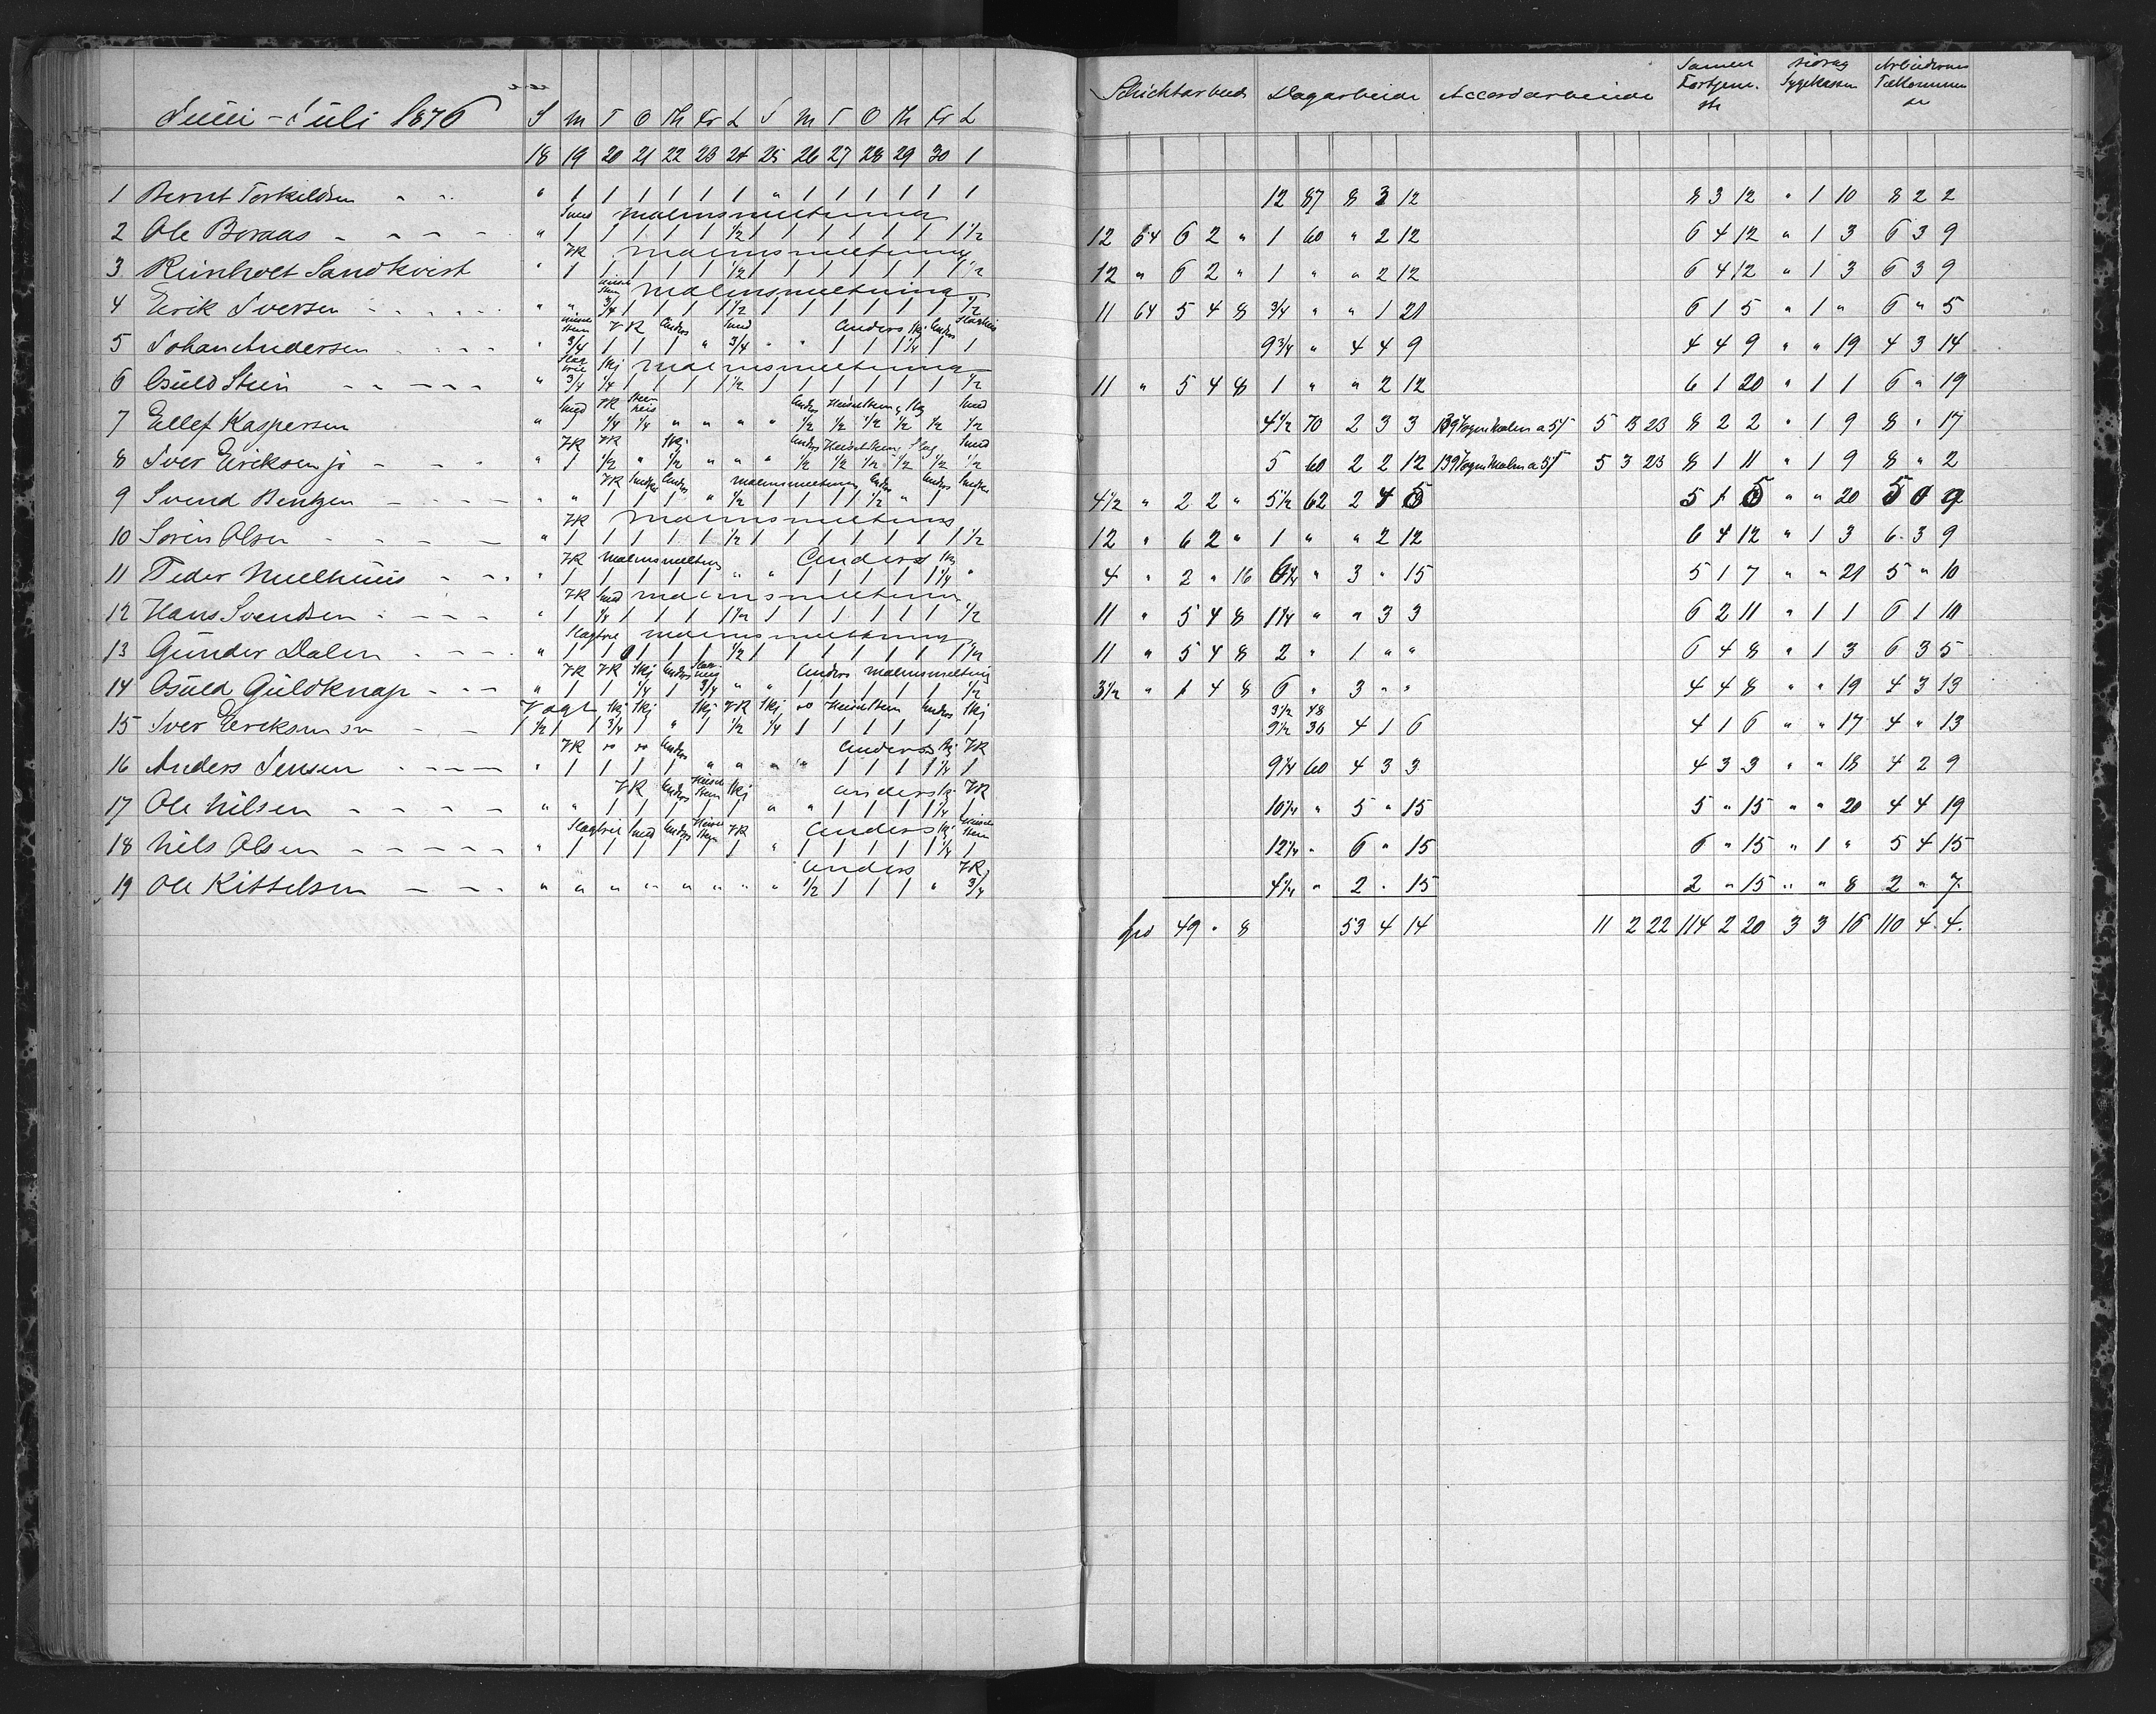 Juni - Juli 1876 S M T O Th Fr L S M T O Th Fr L Schichtarbeid Dagarbeide Accordarbeide Samlet Fortjeneste Sygekassen Arbeidernes Tilkommende
18 19 20 21 22 23 24 25 26 27 28 29 30 1
1 Bernt Torkildsen " 1 1 1 1 1 1 " 1 1 1 1 1 1 12 87 8 3 12 8 3 12 " 1 10 8 2 2
Smed Malmsmeltning
2 Ole Boraas " 1 1 1 1 1 1/2 1 1 1 1 1 1 1 1/2 12 64 6 2 " 1 60 " 2 12 6 4 12 " 1 3 6 3 9
VR Malmsmeltning
3 Reinholt Sandkvist " 1 1 1 1 1 1/2 1 1 1 1 1 1 1 1/2 12 " 6 2 " 1 " " 2 12 6 4 12 " 1 3 6 3 9
Malmsmeltning
4 Eerik Iversen " " 3/4 1 1 1 1 1/2 1 1 1 1 1 1 1/2 11 64 5 4 8 3/4 " " 1 21 6 1 5 " 1 " 6 " 5
VR Anders Smed Anders Skj Anders
5 Johan Andersen " 3/4 1 1 1 " 3/4 " " 1 1 1 1/4 1 1 9 3/4 " 4 4 9 4 4 9 " " 19 4 3 14
Skj Malmsmeltning
6 Osuld Stein " 3/4 1/4 1 1 1 1 1/2 1 1 1 1 1 1 1/2 11 " 5 4 8 1 " " 2 12 6 1 20 " 1 1 6 " 19
Smed VR Anders Heiseltem Skj Smed
7 Ellef Kaspersen " 1 1/4 1/4 " " " " 1/2 1/2 1/2 1/2 1/2 1/2 4 1/2 70 2 3 3 139 Vogn Malm a 5 5 3 23 8 2 2 " 1 9 8 " 17
VR VR Skj Anders Slag Smed
8 Iver Eeriksen jr " 1 1/2 " 1/2 " " " 1/2 1/2 1/2 1/2 1/2 1/2 5 60 2 2 12 139 Vogn Malm a 5 5 3 23 8 1 11 " 1 9 8 " 2
VR Anders Malmsmeltning Anders Anders
9 Svend Bentzen " " 1 1 1 " 1/2 1 1 1 1 1/2 " 1 1 4 1/2 " 2 2 " 5 1/2 62 2 4 5 5 1 5 " " 20 5 0 9
VR Malmsmeltning
10 Sørin Olsen " 1 1 1 1 1 1/2 1 1 1 1 1 1 1 1/2 12 " 6 2 " 1 " " 2 12 6 4 12 " 1 3 6 3 9
VR Malmsmeltning Anders Skj
11 Peder Muelhuus " 1 1 1 1 1 " " 1 1 1 1 1 1/4 " 4 " 2 " 16 6 1/4 " 3 " 15 5 1 7 " " 21 5 " 10
VR Smed Malmsmeltning
12 Hans Svendsen " 1 1/4 1 1 1 1 1/2 1 1 1 1 1 1 1/2 11 " 5 4 8 1 1/4 " " 3 3 6 2 11 " 1 1 6 1 10
Malmsmeltning
13 Gunder Dalen " 1 1 1 1 1 1/2 1 1 1 1 1 1 1 1/2 11 " 5 4 8 2 " 1 " " 6 4 8 " 1 3 6 3 5
VR VR Skj Anders Anders Malmsmeltning
14 Osuld Guldknap " 1 1 1/4 1 3/4 " " 1 1 1 1 1 1/2 3 1/2 " 1 4 8 6 " 3 " " 4 4 8 " " 19 4 3 13
Vagt Skj Skj Skj VR Skj Anders Skj 3 1/2 48
15 Iver Eeriksen sn 1 1/2 1 1 3/4 1 " 1 1/2 1/4 1 1 1 1 1 1 9 1/2 36 4 1 6 4 1 6 " " 17 4 " 13
VR Anders Anders Skj VR
16 Anders Jensen " 1 1 1 1 " " " " 1 1 1 1 1/4 1 9 1/4 60 4 3 3 4 3 3 " " 18 4 2 9
VR Anders Skj Anders VR
17 Ole Nilsen " " 1 1 1 1 1 " " 1 1 1 1 1/4 1 10 1/4 " 5 " 15 5 " 15 " " 20 4 4 19
Smed Anders VR Anders Skj
18 Nils Olsen " 1 1 1 1 1 1 " 1 1 1 1 1 1/4 1 12 1/4 " 6 " 15 6 " 15 " 1 " 5 4 15
Anders VR
19 Ole Kittelsen " " " " " " " " 1/2 1 1 1 " 3/4 4 1/4 " 2 " 15 2 " 15 " " 8 2 " 7
49 " 8 53 4 14 11 2 22 114 2 20 3 3 16 110 4 4